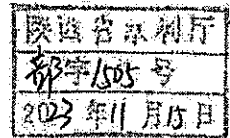 陕西省水利厅
部字1505号
2023年11月15日